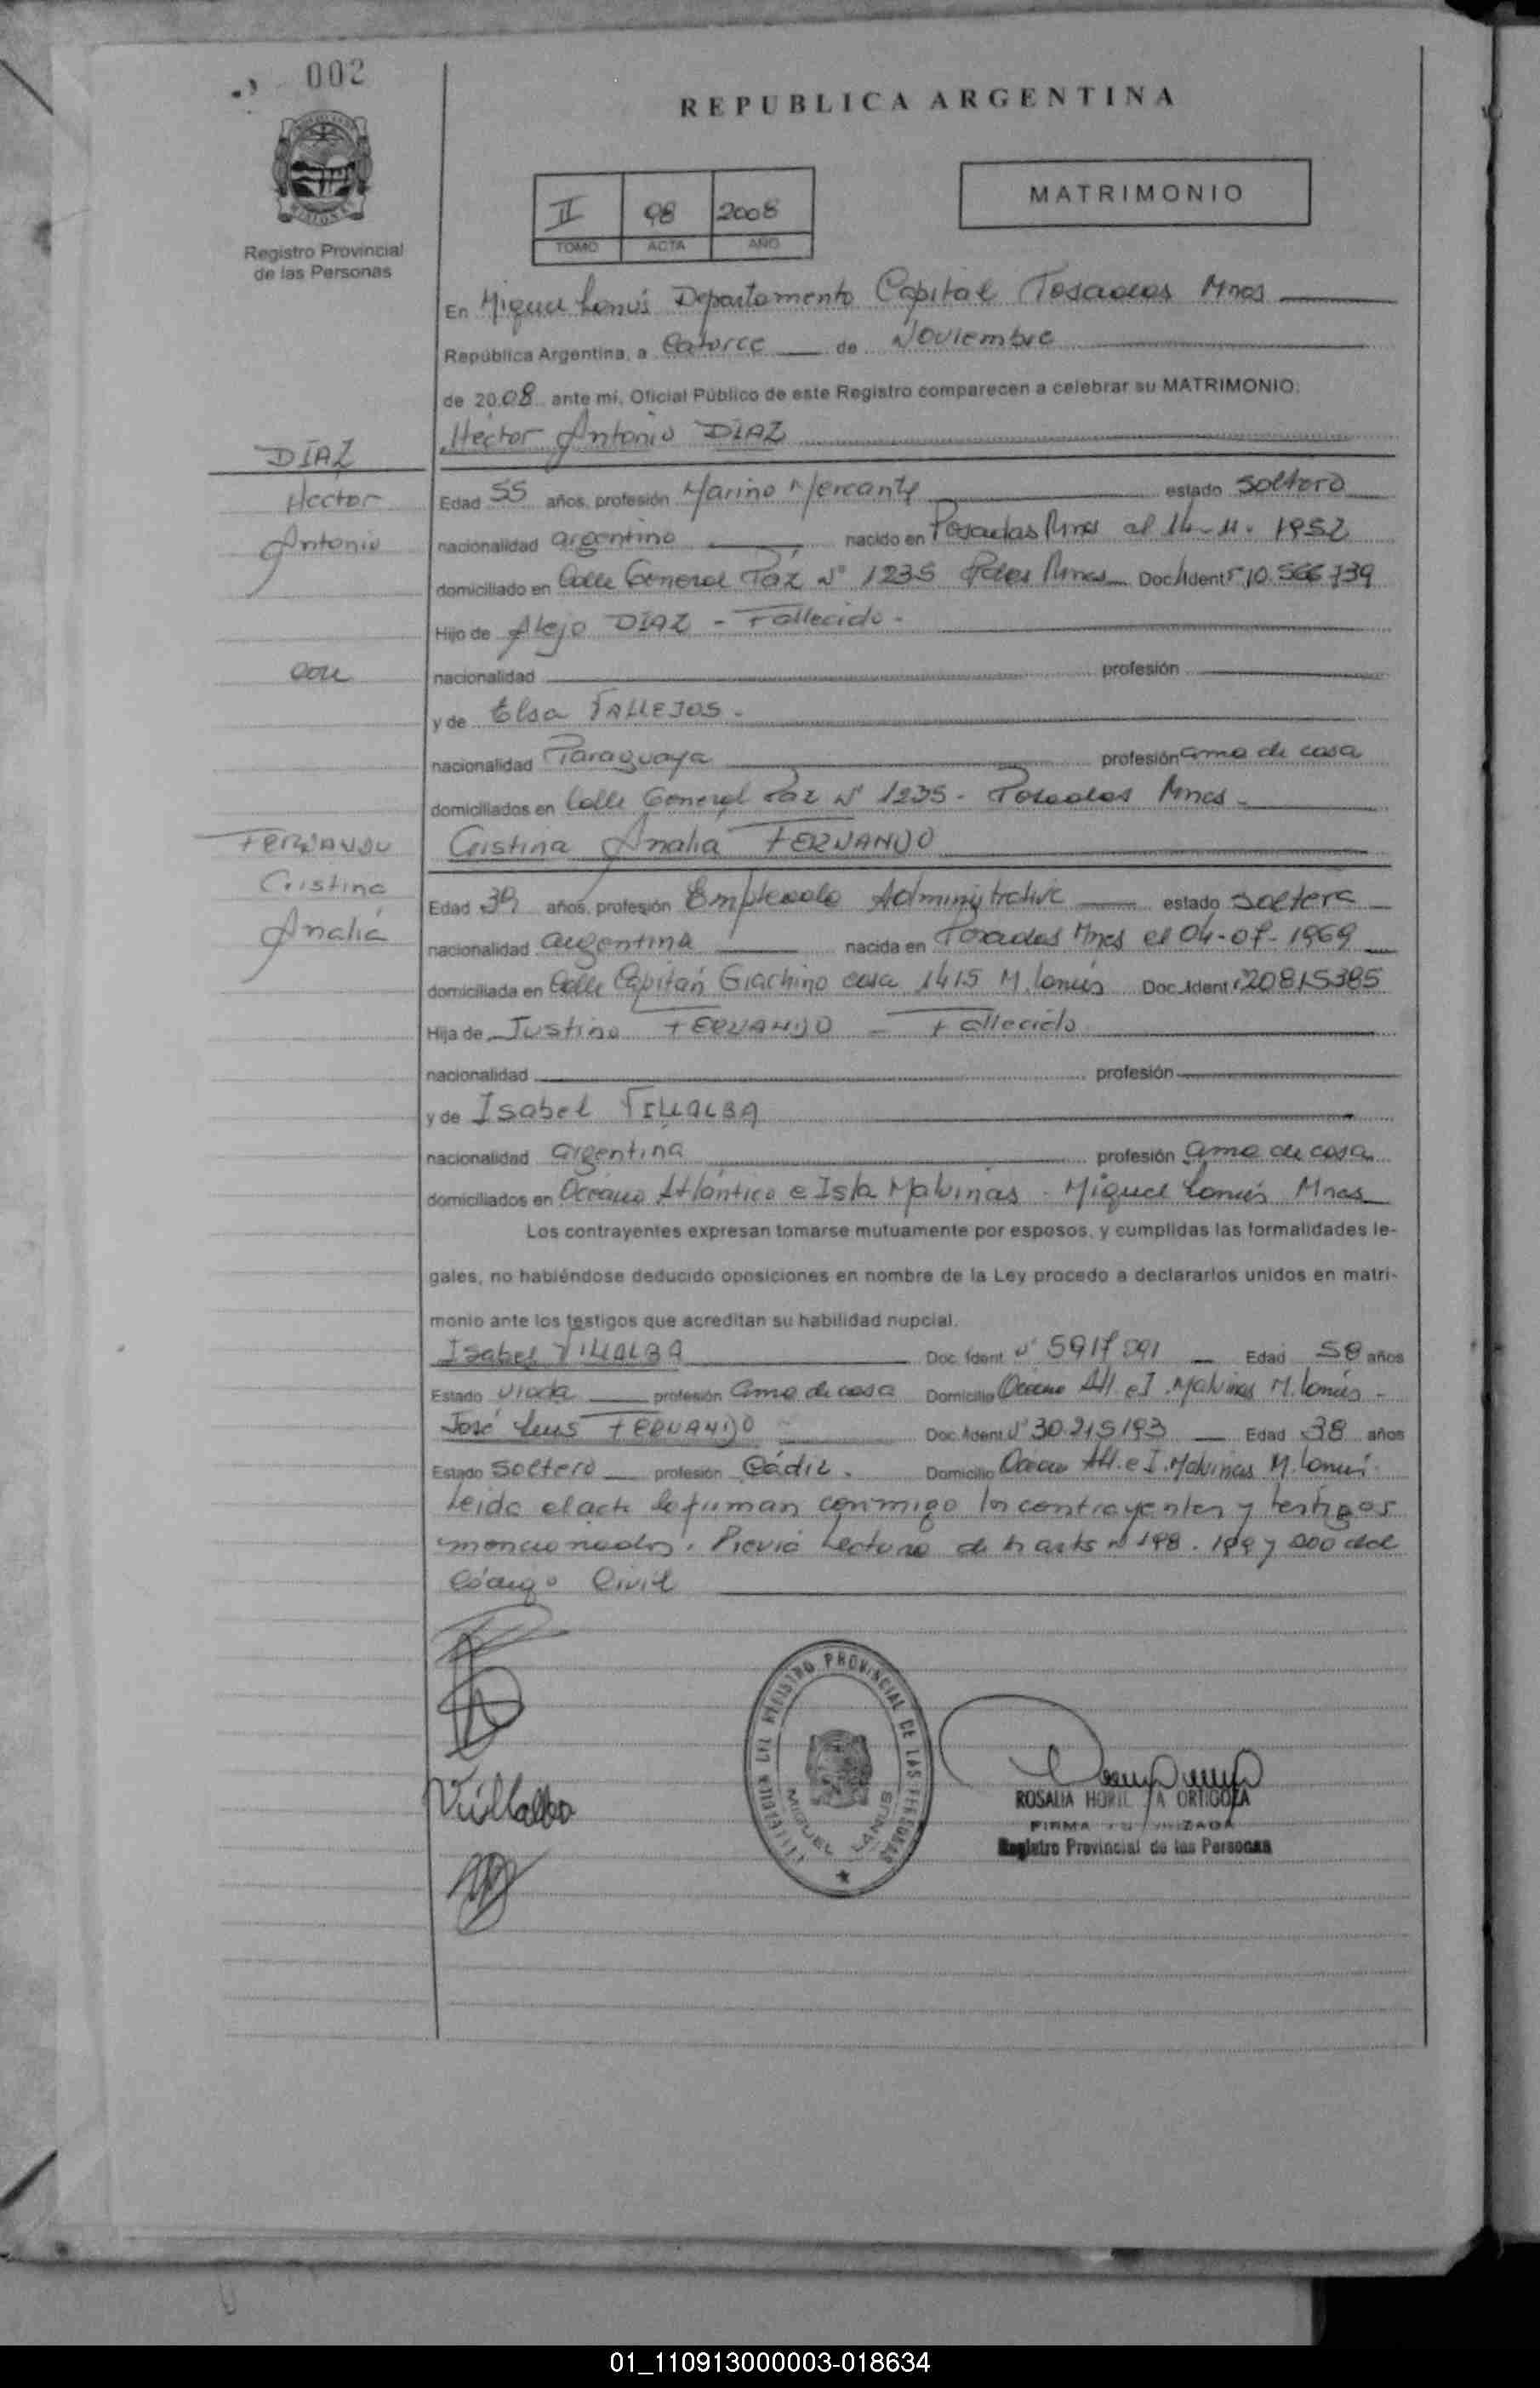 002
REPUBLICA ARGENTINA
MATRIMONIO
II 98 2008
TOMO ACTA AÑO
Registro Provincial
de las Personas
En Miguel Lanús Departamento Capital Posadas Mnes
República Argentina, a Catorce de Noviembre
de 2008 ante mi, Oficial Público de este Registro comparecen a celebrar su MATRIMONIO:
Héctor Antonio DIAZ
DIAZ
Hector
Antonio
Edad 55 años, profesión Marino Mercante estado soltero
nacionalidad argentino nacido en Posadas Mnes el 14-11-1952
domiciliado en Calle General Paz Nº 1235 Pdas Mnes Doc. Ident. 10.566.739
Hijo de Alejo DIAZ - Fallecido -
con
nacionalidad profesión
y de Elsa VALLEJOS -
nacionalidad Paraguaya profesión ama de casa
domiciliados en Calle General Paz Nº 1235 - Posadas Mnes -
FERNANDO
Cristina
Analia
Cristina Analia FERNANDO
Edad 39 años, profesión Empleada Administrativa estado soltera
nacionalidad argentina nacida en Posadas Mnes el 04-07-1969
domiciliada en Calle Capitán Giachino casa 1415 M. Lanús Doc. Ident. 20815385
Hija de Justino FERNANDO - Fallecido
nacionalidad profesión
y de Isabel VILLALBA
nacionalidad argentina profesión ama de casa
domiciliados en Océano Atlántico e Isla Malvinas - Miguel Lanús Mnes
Los contrayentes expresan tomarse mutuamente por esposos, y cumplidas las formalidades le-
gales, no habiéndose deducido oposiciones en nombre de la Ley procedo a declararlos unidos en matri-
monio ante los testigos que acreditan su habilidad nupcial.
Isabel VILLALBA Doc. Ident. Nº Edad 58 años
Estado viuda profesión ama de casa Domicilio Océano Atl. e I. Malvinas M. Lanús -
José Luis FERNANDO Doc. Ident. Nº 30.215193 Edad 38 años
Estado soltero profesión Domicilio Océano Atl. e I. Malvinas M. Lanús -
Leida el acta la firman conmigo los contrayentes y testigos
mencionados. Previa Lectura de los arts nº 198. 199 y 200 del
Código Civil
Villalba
DELEGACION DEL REGISTRO PROVINCIAL DE LAS PERSONAS
MIGUEL LANUS
ROSALIA ORTIGOZA
FIRMA AUTORIZADA
Registro Provincial de las Personas
01_110913000003-018634